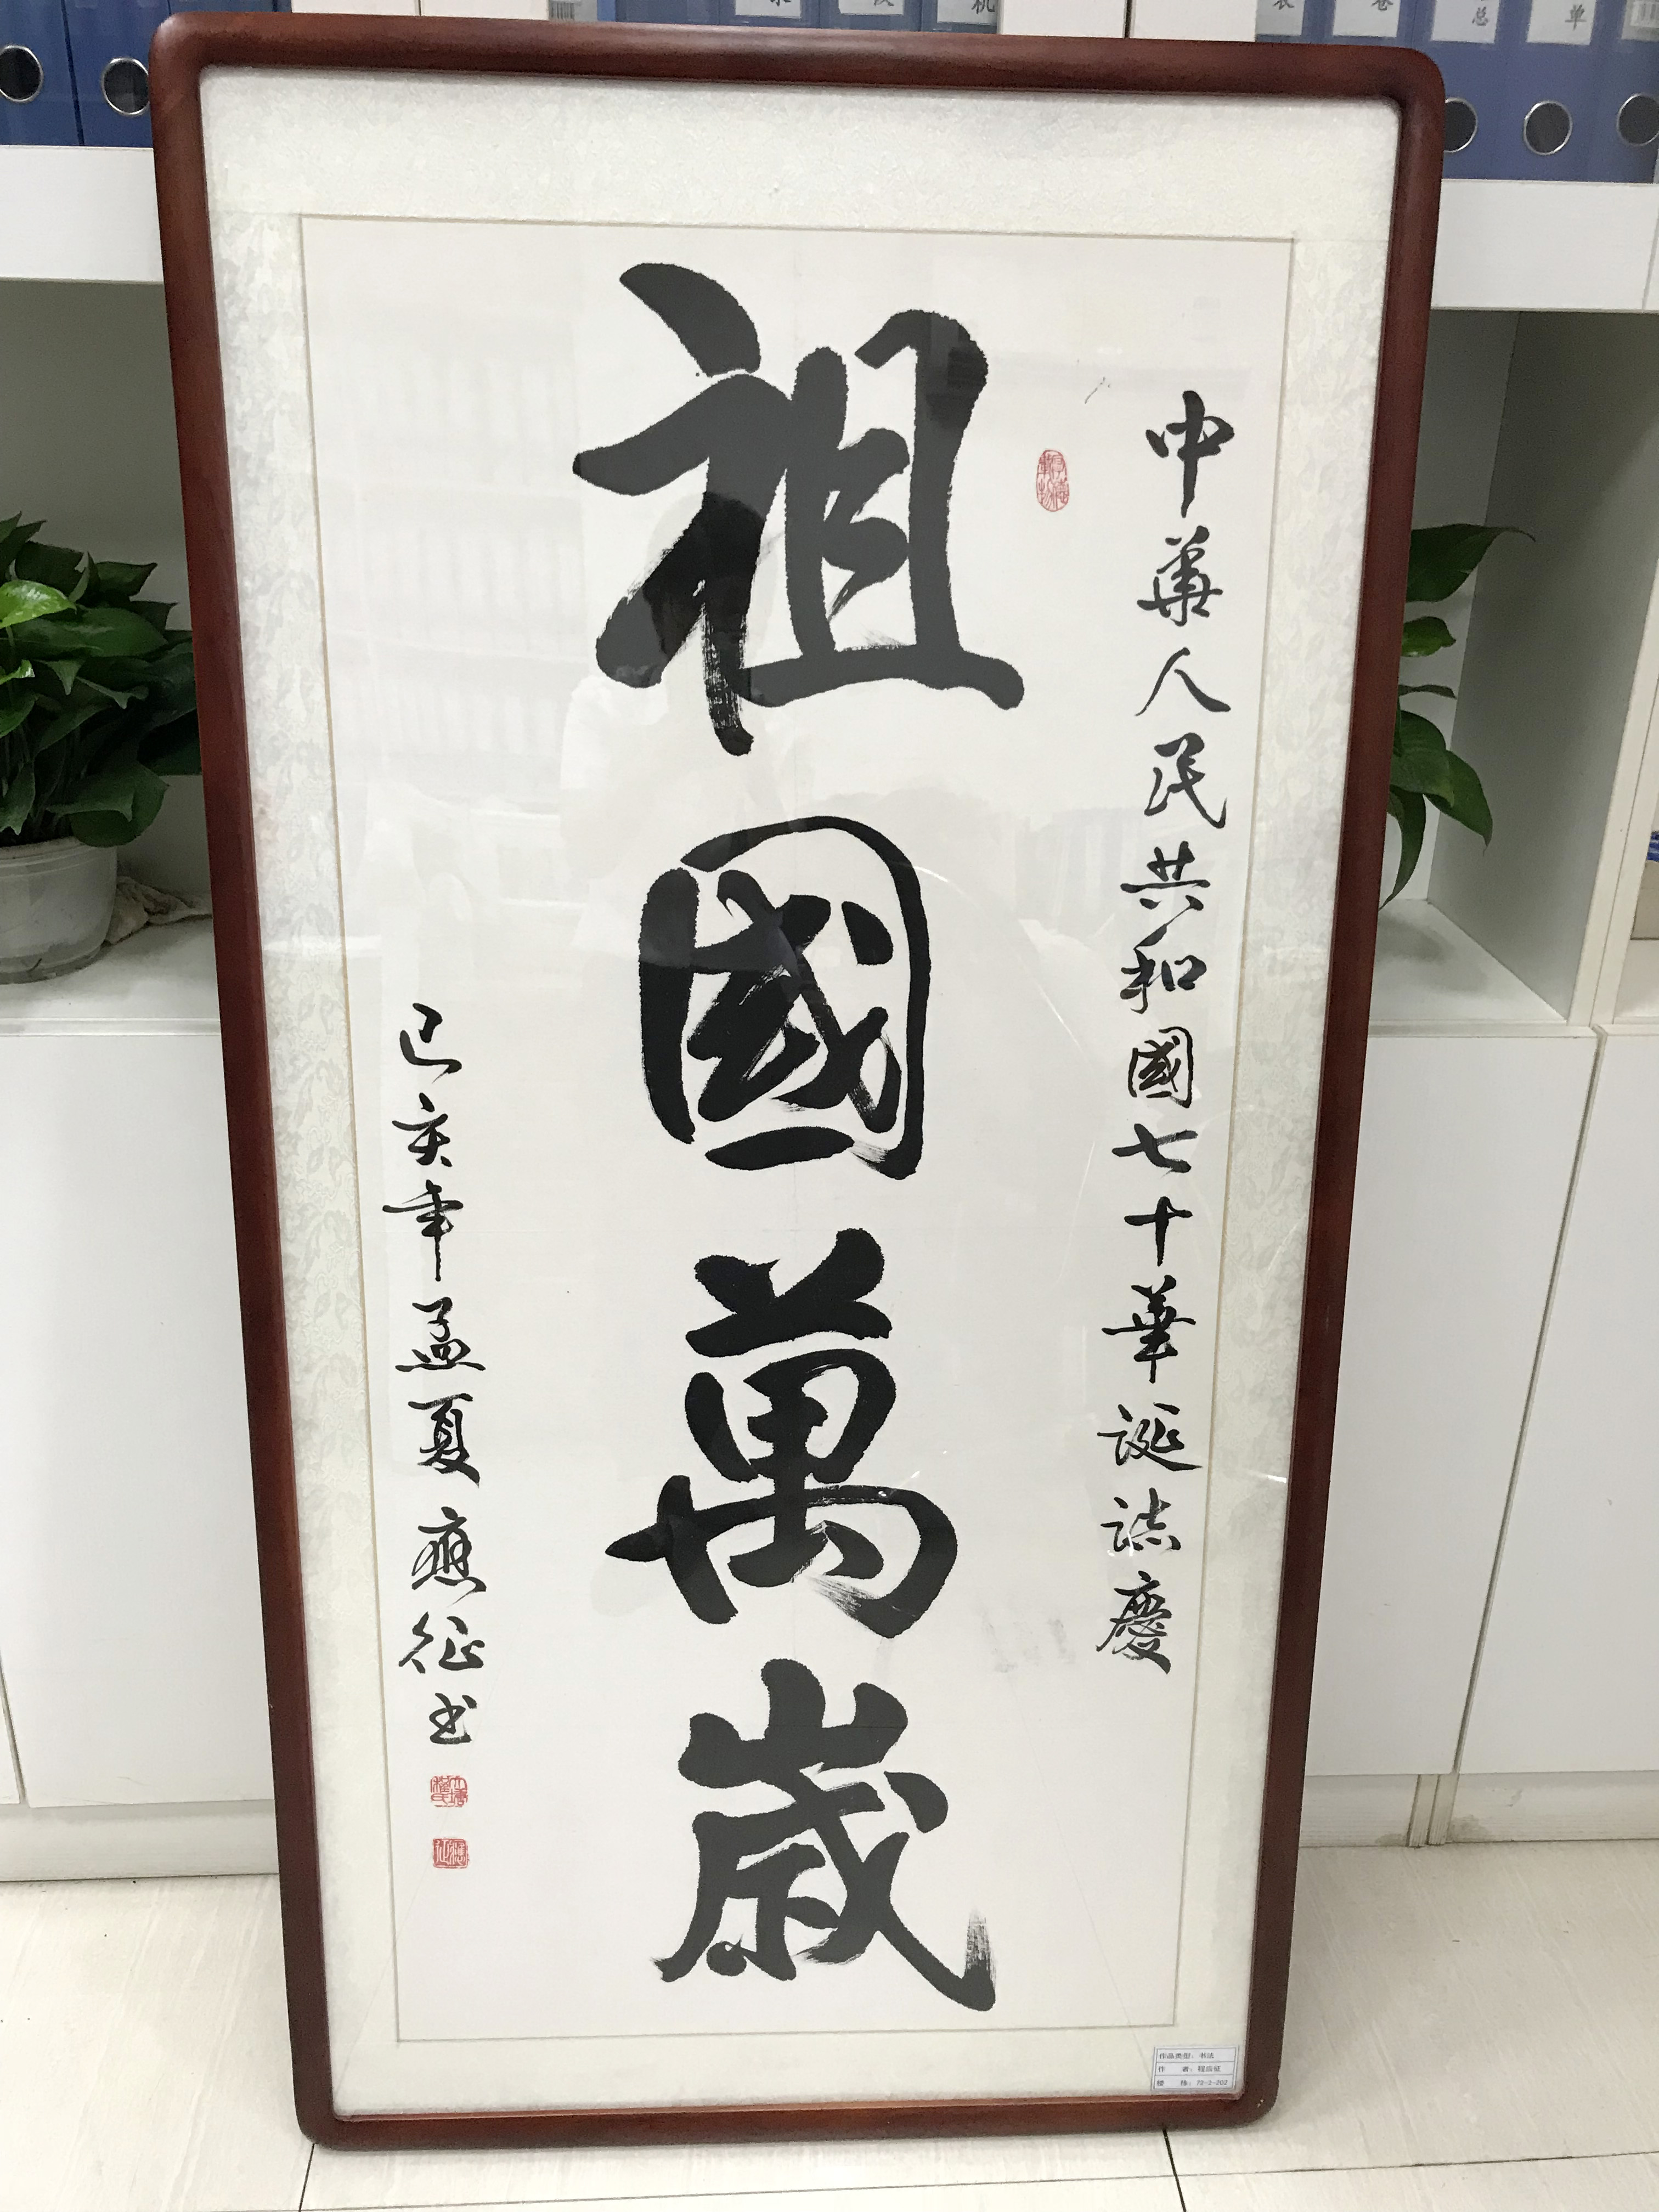 中華人民共和國七十華誕誌慶
祖國萬歲
己亥年孟夏應征书
作品类别：书法
作 者：程应征
楼 栋：72-2-202
总
单
机